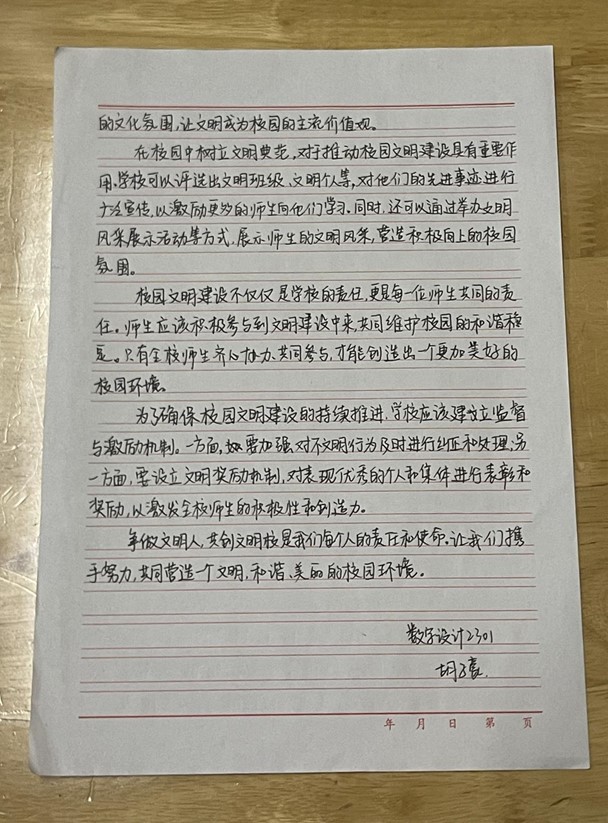 的文化氛围,让文明成为校园的主流价值观。
在校园中树立文明典范,对于推动校园文明建设具有重要作
用。学校可以评选出文明班级、文明个人等,对他们的先进事迹进行
广泛宣传,以激励更多的师生向他们学习。同时,还可以通过举办文明
风采展示活动等方式,展示师生的文明风采,营造积极向上的校园
氛围。
校园文明建设不仅仅是学校的责任,更是每一位师生共同的责
任。师生应该积极参与到文明建设中来,共同维护校园的和谐稳
定。只有全校师生齐心协力、共同参与,才能创造出一个更加美好的
校园环境。
为了确保校园文明建设的持续推进,学校应该建立监督
与激励机制。一方面,要加强对不文明行为及时进行纠正和处理;另
一方面,要设立文明奖励机制,对表现优秀的个人和集体进行表彰和
奖励,以激发全校师生的积极性和创造力。
争做文明人,共创文明校是我们每个人的责任和使命。让我们携
手努力,共同营造一个文明,和谐、美丽的校园环境。
数字设计2301
胡
年 月 日 第 页